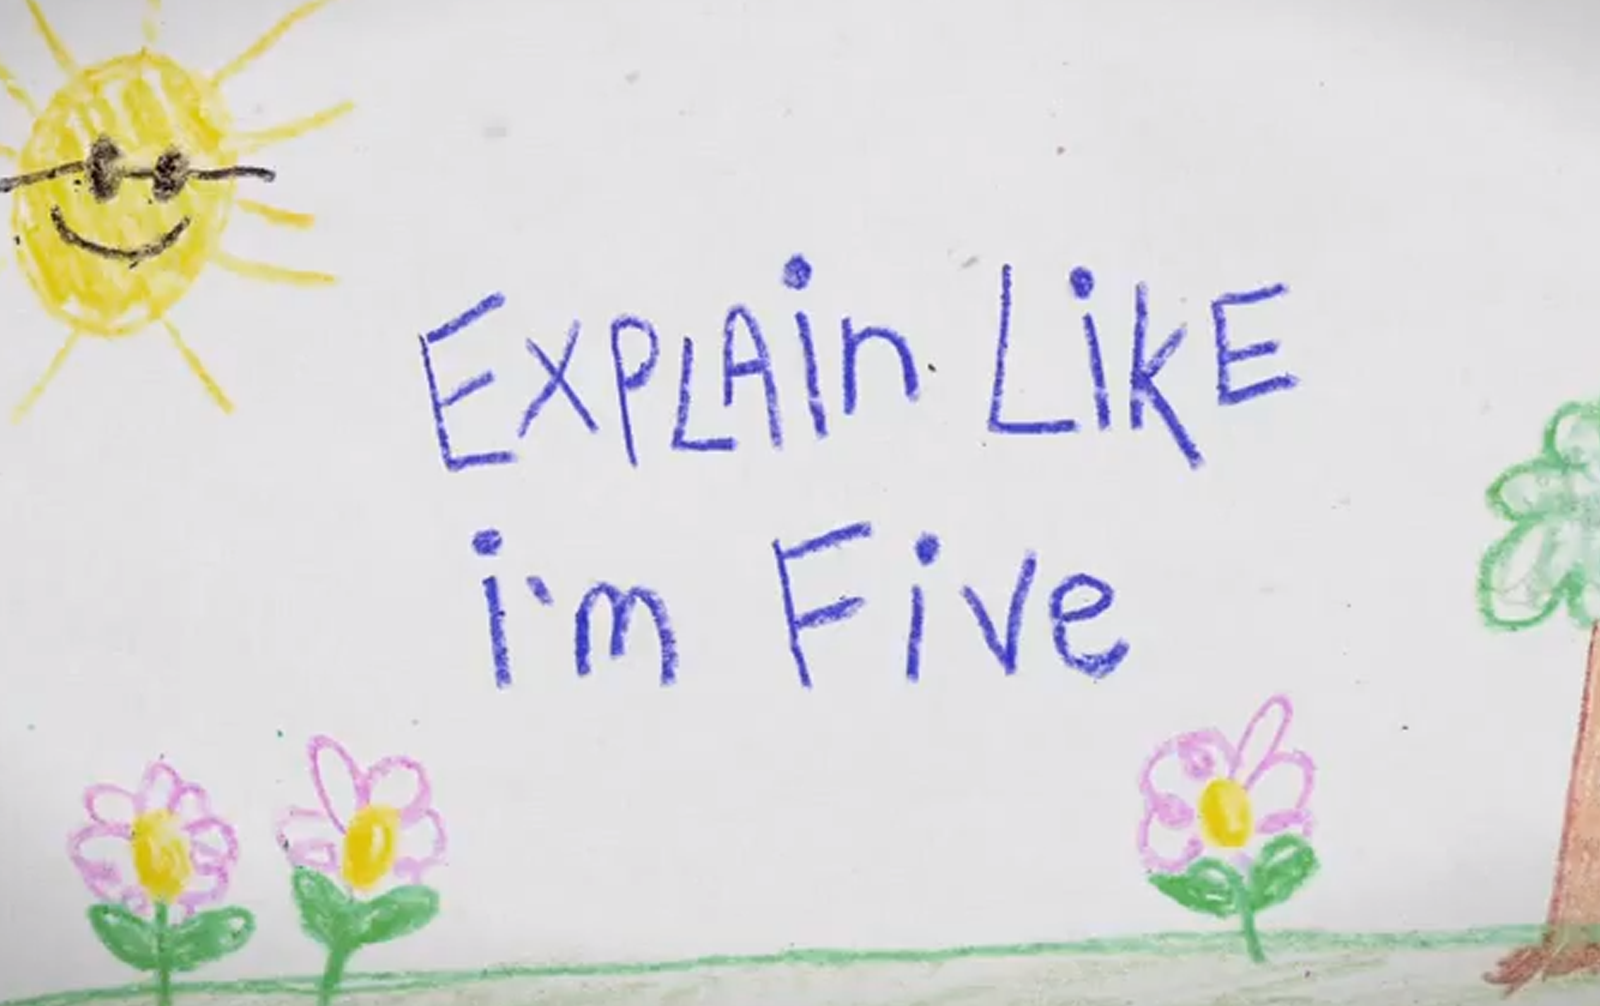 ExpLAin LikE
i'm Five